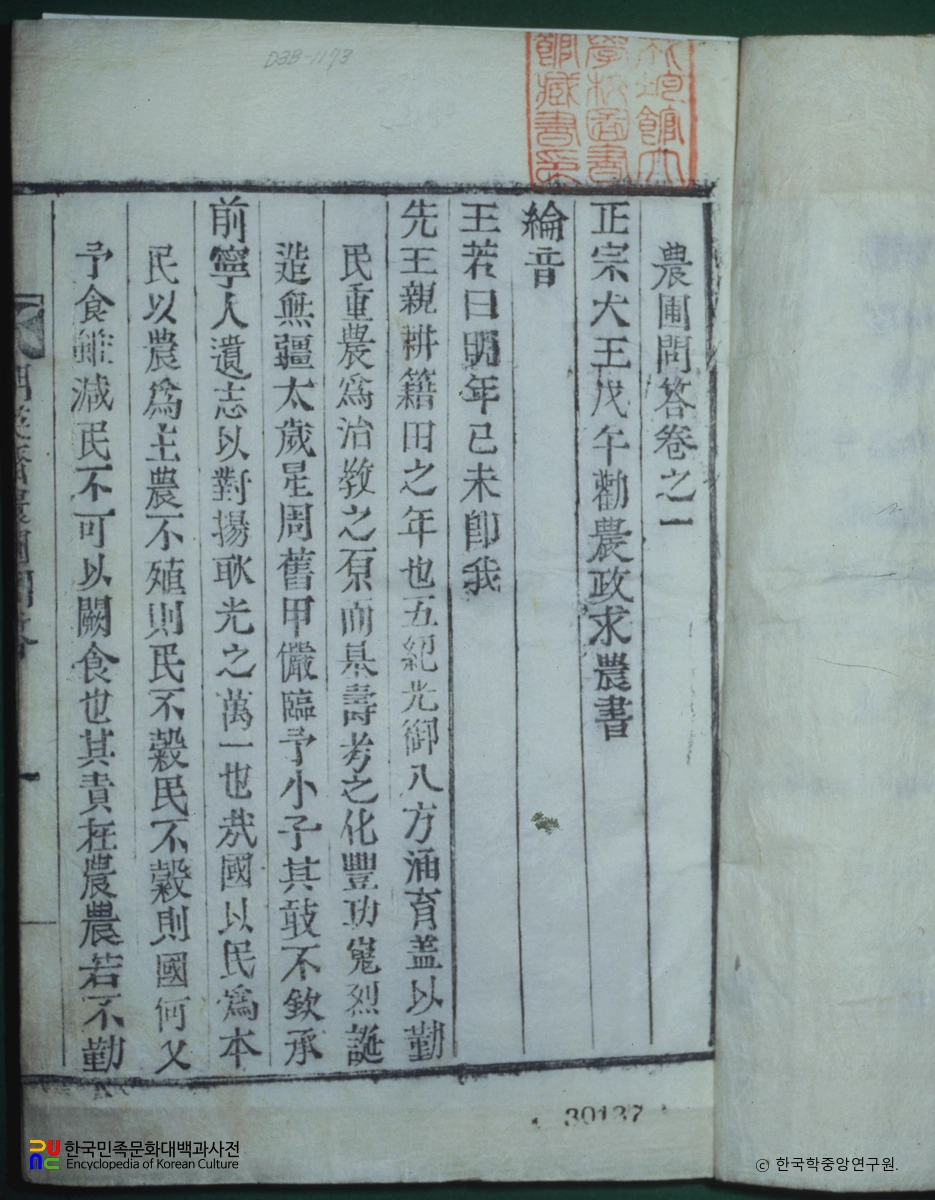 D3B-1173
成均館大
學校圖書
館藏書印
農圃問答卷之一
正宗大王戊午勸農政求農書
綸音
王若曰明年己未卽我
先王親耕籍田之年也五紀光御八方涵育盖以勤
民重農爲治敎之原而是壽考之化豐功嵬烈誕
造無疆太歲星周舊甲儼臨予小子其敢不欽承
前寧人遺志以對揚耿光之萬一也哉國以民爲本
民以農爲主農不殖則民不穀民不穀則國何乂
予食雖減民不可以闕食也其責在農農若不勤
30137
한국민족문화대백과사전
Encyclopedia of Korean Culture
ⓒ 한국학중앙연구원.